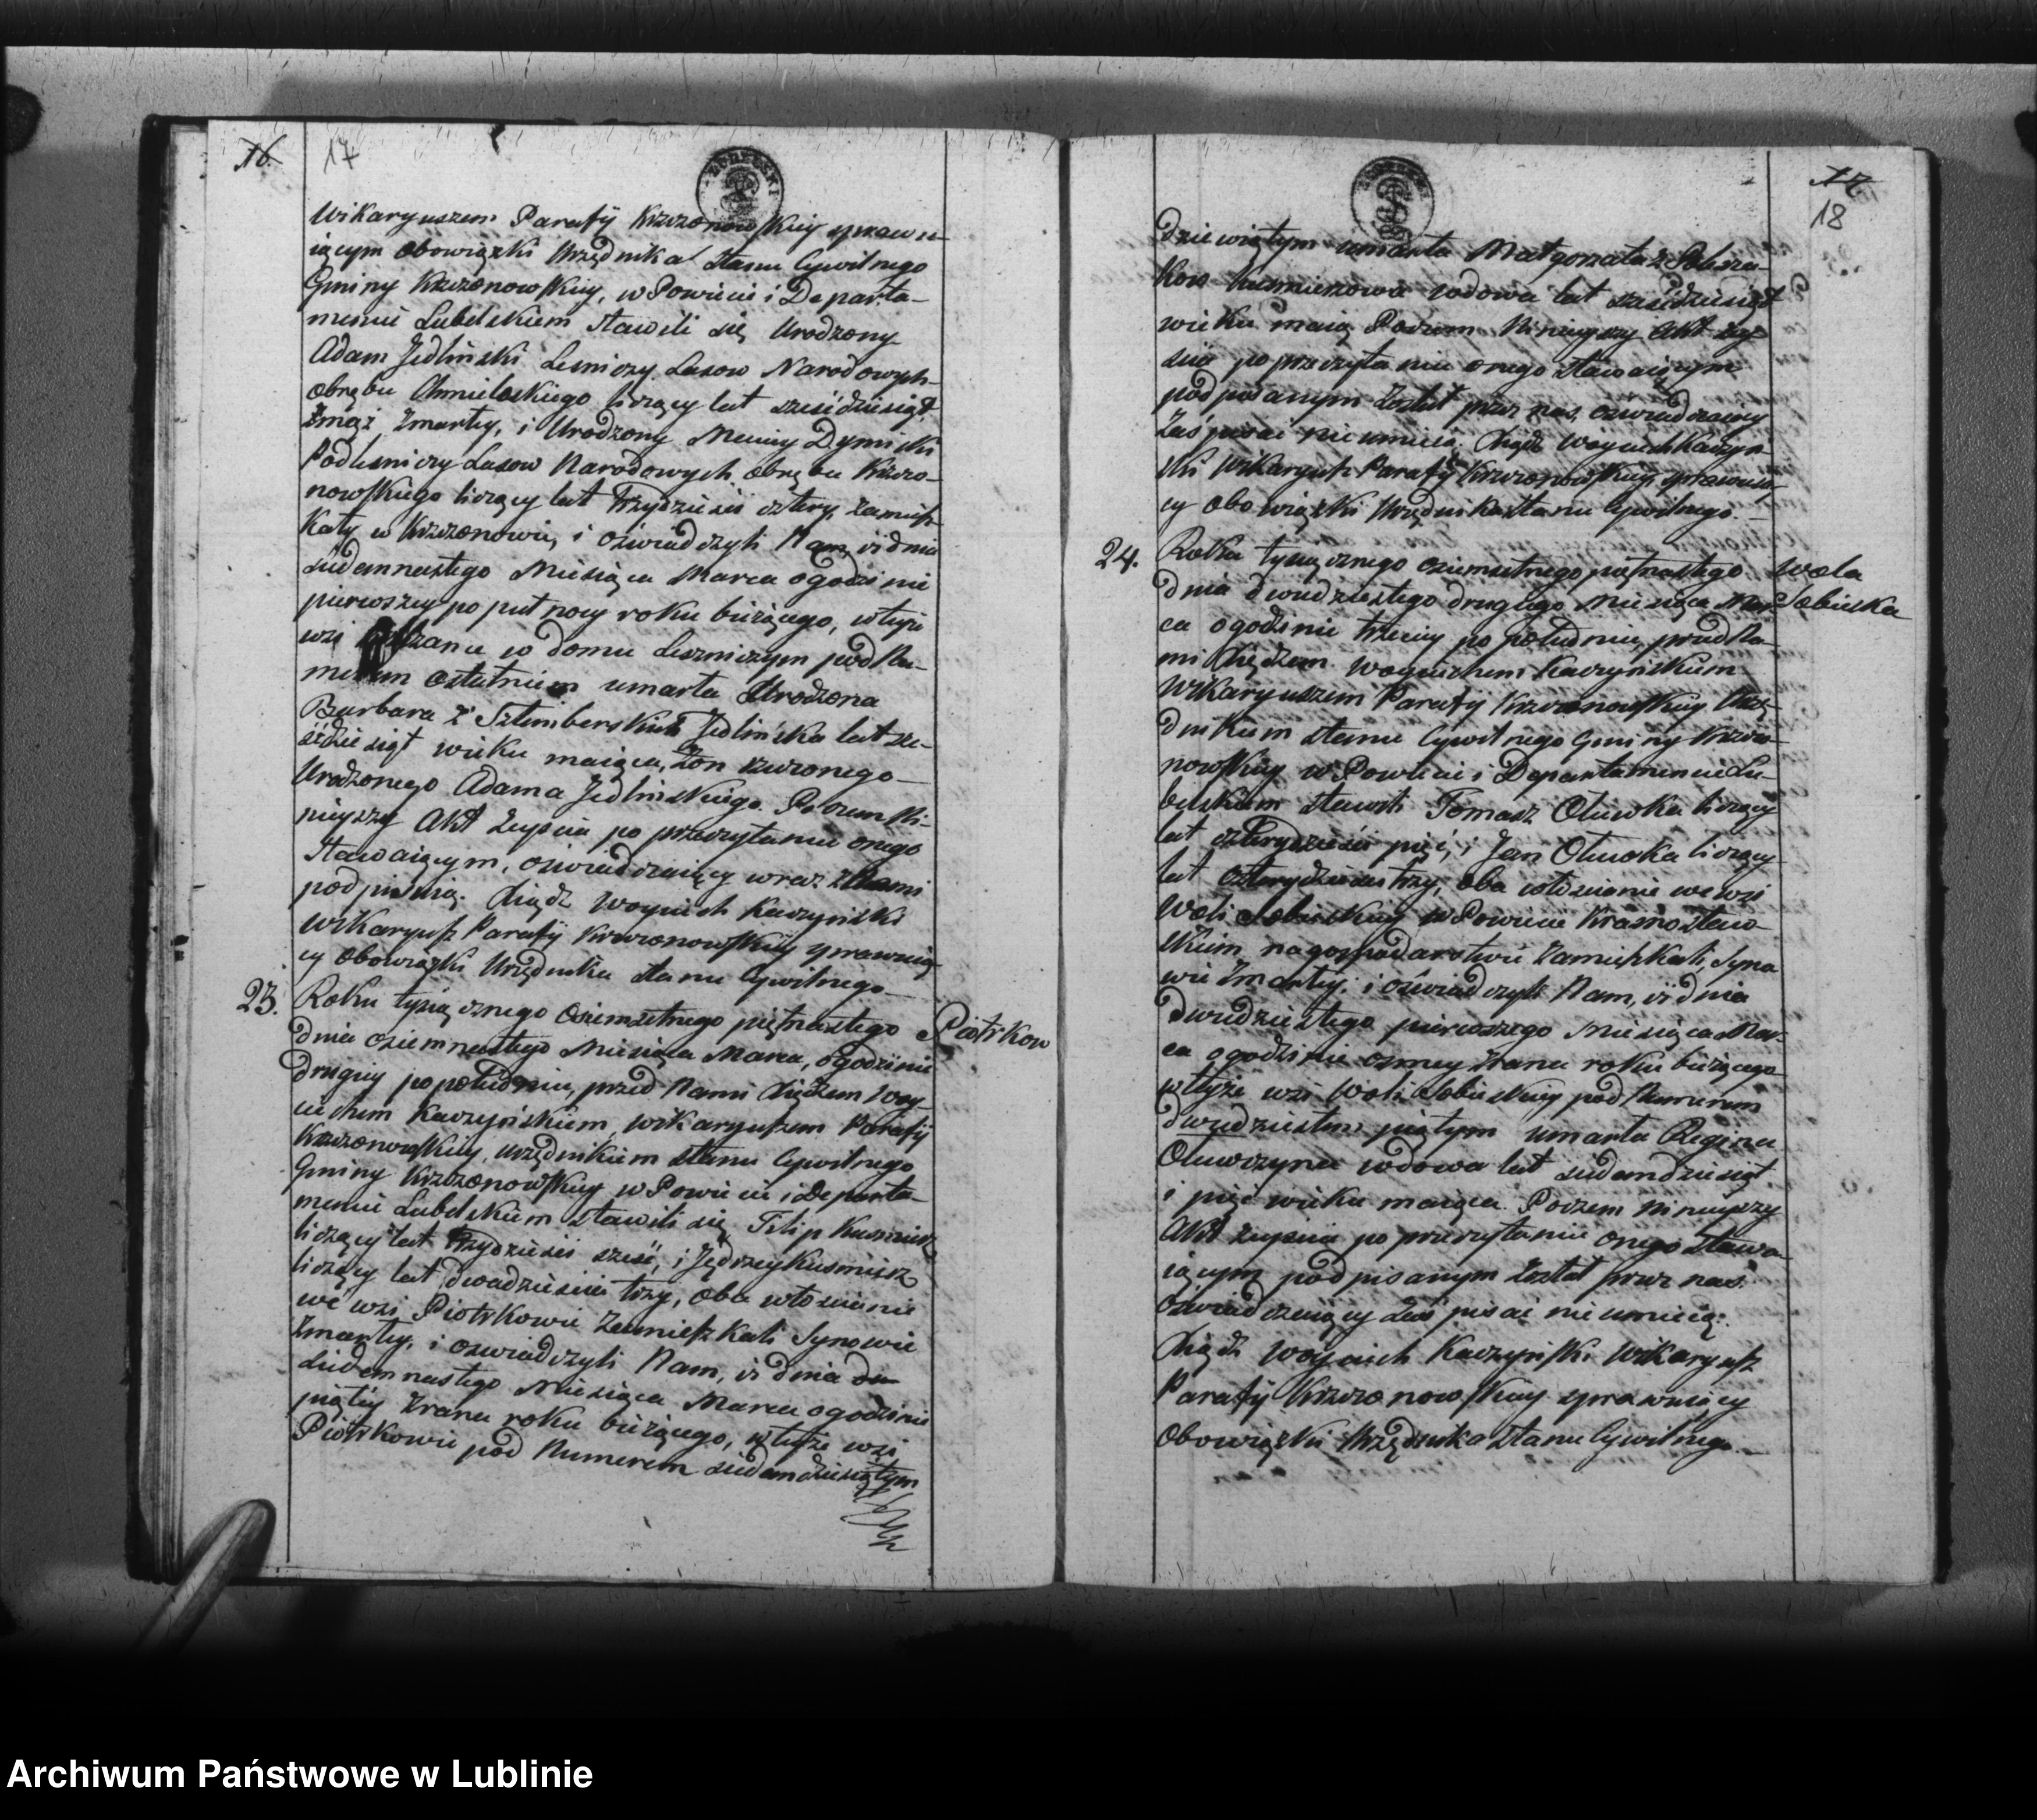 16. 17
Wikaryuszem Parafij Krzczonowskiey sprawu-
iącym obowiązki Urzędnika Stanu Cywilnego
Gminy Krzczonowskiey, w Powiecie i Departa-
mencie Lubelskiem stawili się Urodzony
Adam Jedliński Leśniczy Lasow Narodowych
obrębu Chmieloskiego liczący lat sześćdziesiąt
Zmarłey, i Urodzony Dymiński
Podleśniczy Lasow Narodowych obrębu Krzczo-
nowskiego liczący lat Trzydzieści cztery, zamiesz-
kały w Krzczonowie, i oświadczyli Nam, iż dnia
siedemnastego Miesiąca Marca o godzinie
pierwszey po pułnocy roku bieżącego, w teyże
wsi w domu Leszniczym pod Nu-
merem ostatniem umarła Urodzona
Barbara z Jedlińska lat sze-
śćdziesiąt wieku maiąca, Żon
Urodzonego Adama Jedlinskiego. Poczem Ni-
nieyszy Akt Zeyscia po przeczytaniu onego
Stawaiącym, oświadczaiący wraz z Nami
podpisuią. Xiądz Woyciech Kaczyński
Wikaryusz Parafij Krzczonowskiey sprawuią-
cy Obowiązki Urzędnika Stanu Cywilnego
23. Roku tysiącznego Osiemsetnego piętnastego Piotrkow
dnia osiemnastego Miesiąca Marca, o godzinie
drugiey po południu, przed Nami Xiędzem Woy-
ciechem Kaczyńskiem, Wikaryuszem Parafij
Krzczonowskiey, urzędnikiem Stanu Cywilnego
Gminy Krzczonowskiey w Powiecie i Departa-
mencie Lubelskiem stawili się Filip Kusmierz
liczący lat Trzydzieści sześć, i Jędrzey Kusmierz
liczący lat dwadzieścia trzy, oba włościanie
we wsi Piotrkowie Zamieszkali Synowie
Zmarłey, i oswiadczyli Nam, iż dnia
siedemnastego Miesiąca Marca o godzinie
piątey Zrana roku bieżącego, w teyże wsi
Piotrkowie pod Numerem siedemdziesiątym
17. 18
dziewiątym umarła Małgorzata z
Kusmierzowa wdowa lat sześćdziesiąt
wieku maią Poczem Ninieyszy Akt Zey-
scia po przeczytaniu onego stawaiącym
podpisanym został przez nas, oświadczaiący
Zaś pisać nie umieią. Xiądz Woyciech Kaczyń-
ski Wikaryusz Parafij Krzczonowskiey sprawuią-
cy Obowiązki Urzędnika Stanu Cywilnego.
24. Roku tysiącznego osiemsetnego piętnastego Wola
dnia dwudziestego drugiego Miesiąca Mar- Sobieska
ca o godzinie trzeciey po południu, przed Na-
mi Xiędzem Woyciechem Kaczyńskiem
Wikaryuszem Parafij Krzczonowskiey Urzę-
dnikiem Stanu Cywilnego Gminy Krzczo-
nowskiey w Powiecie i Departamencie Lu-
belskiem stawili Tomasz Oluwka liczący
lat czterydzieści pięć, i Jan Oluwka liczący
lat czterydzieści trzy, oba włościanie we wsi
Woli Sobieskiey w Powiecie Krasnostaw-
skiem, na gospodarstwie Zamieszkali, Syno
wie Zmarłey, i oświadczyli Nam, iż dnia
Dwudziestego pierwszego Miesiąca Mar-
ca o godzinie osmey Zrana roku bieżącego
w teyże wsi Woli Sobieskiey pod Numerem
Dwudziestem piątym umarła Regina
Oluwczyna wdowa lat siedemdziesiąt
i pięć wieku maiąca. Poczem Ninieyszy
Akt Zeyscia po przeczytaniu onego Stawa-
iącym podpisanym został przez nas.
Oświadczaiący Zaś pisać nie umieią.
Xiądz Woyciech Kaczyński Wikaryusz
Parafij Krzczonowskiey sprawuiący
Obowiązki Urzędnika Stanu Cywilnego.
Archiwum Państwowe w Lublinie